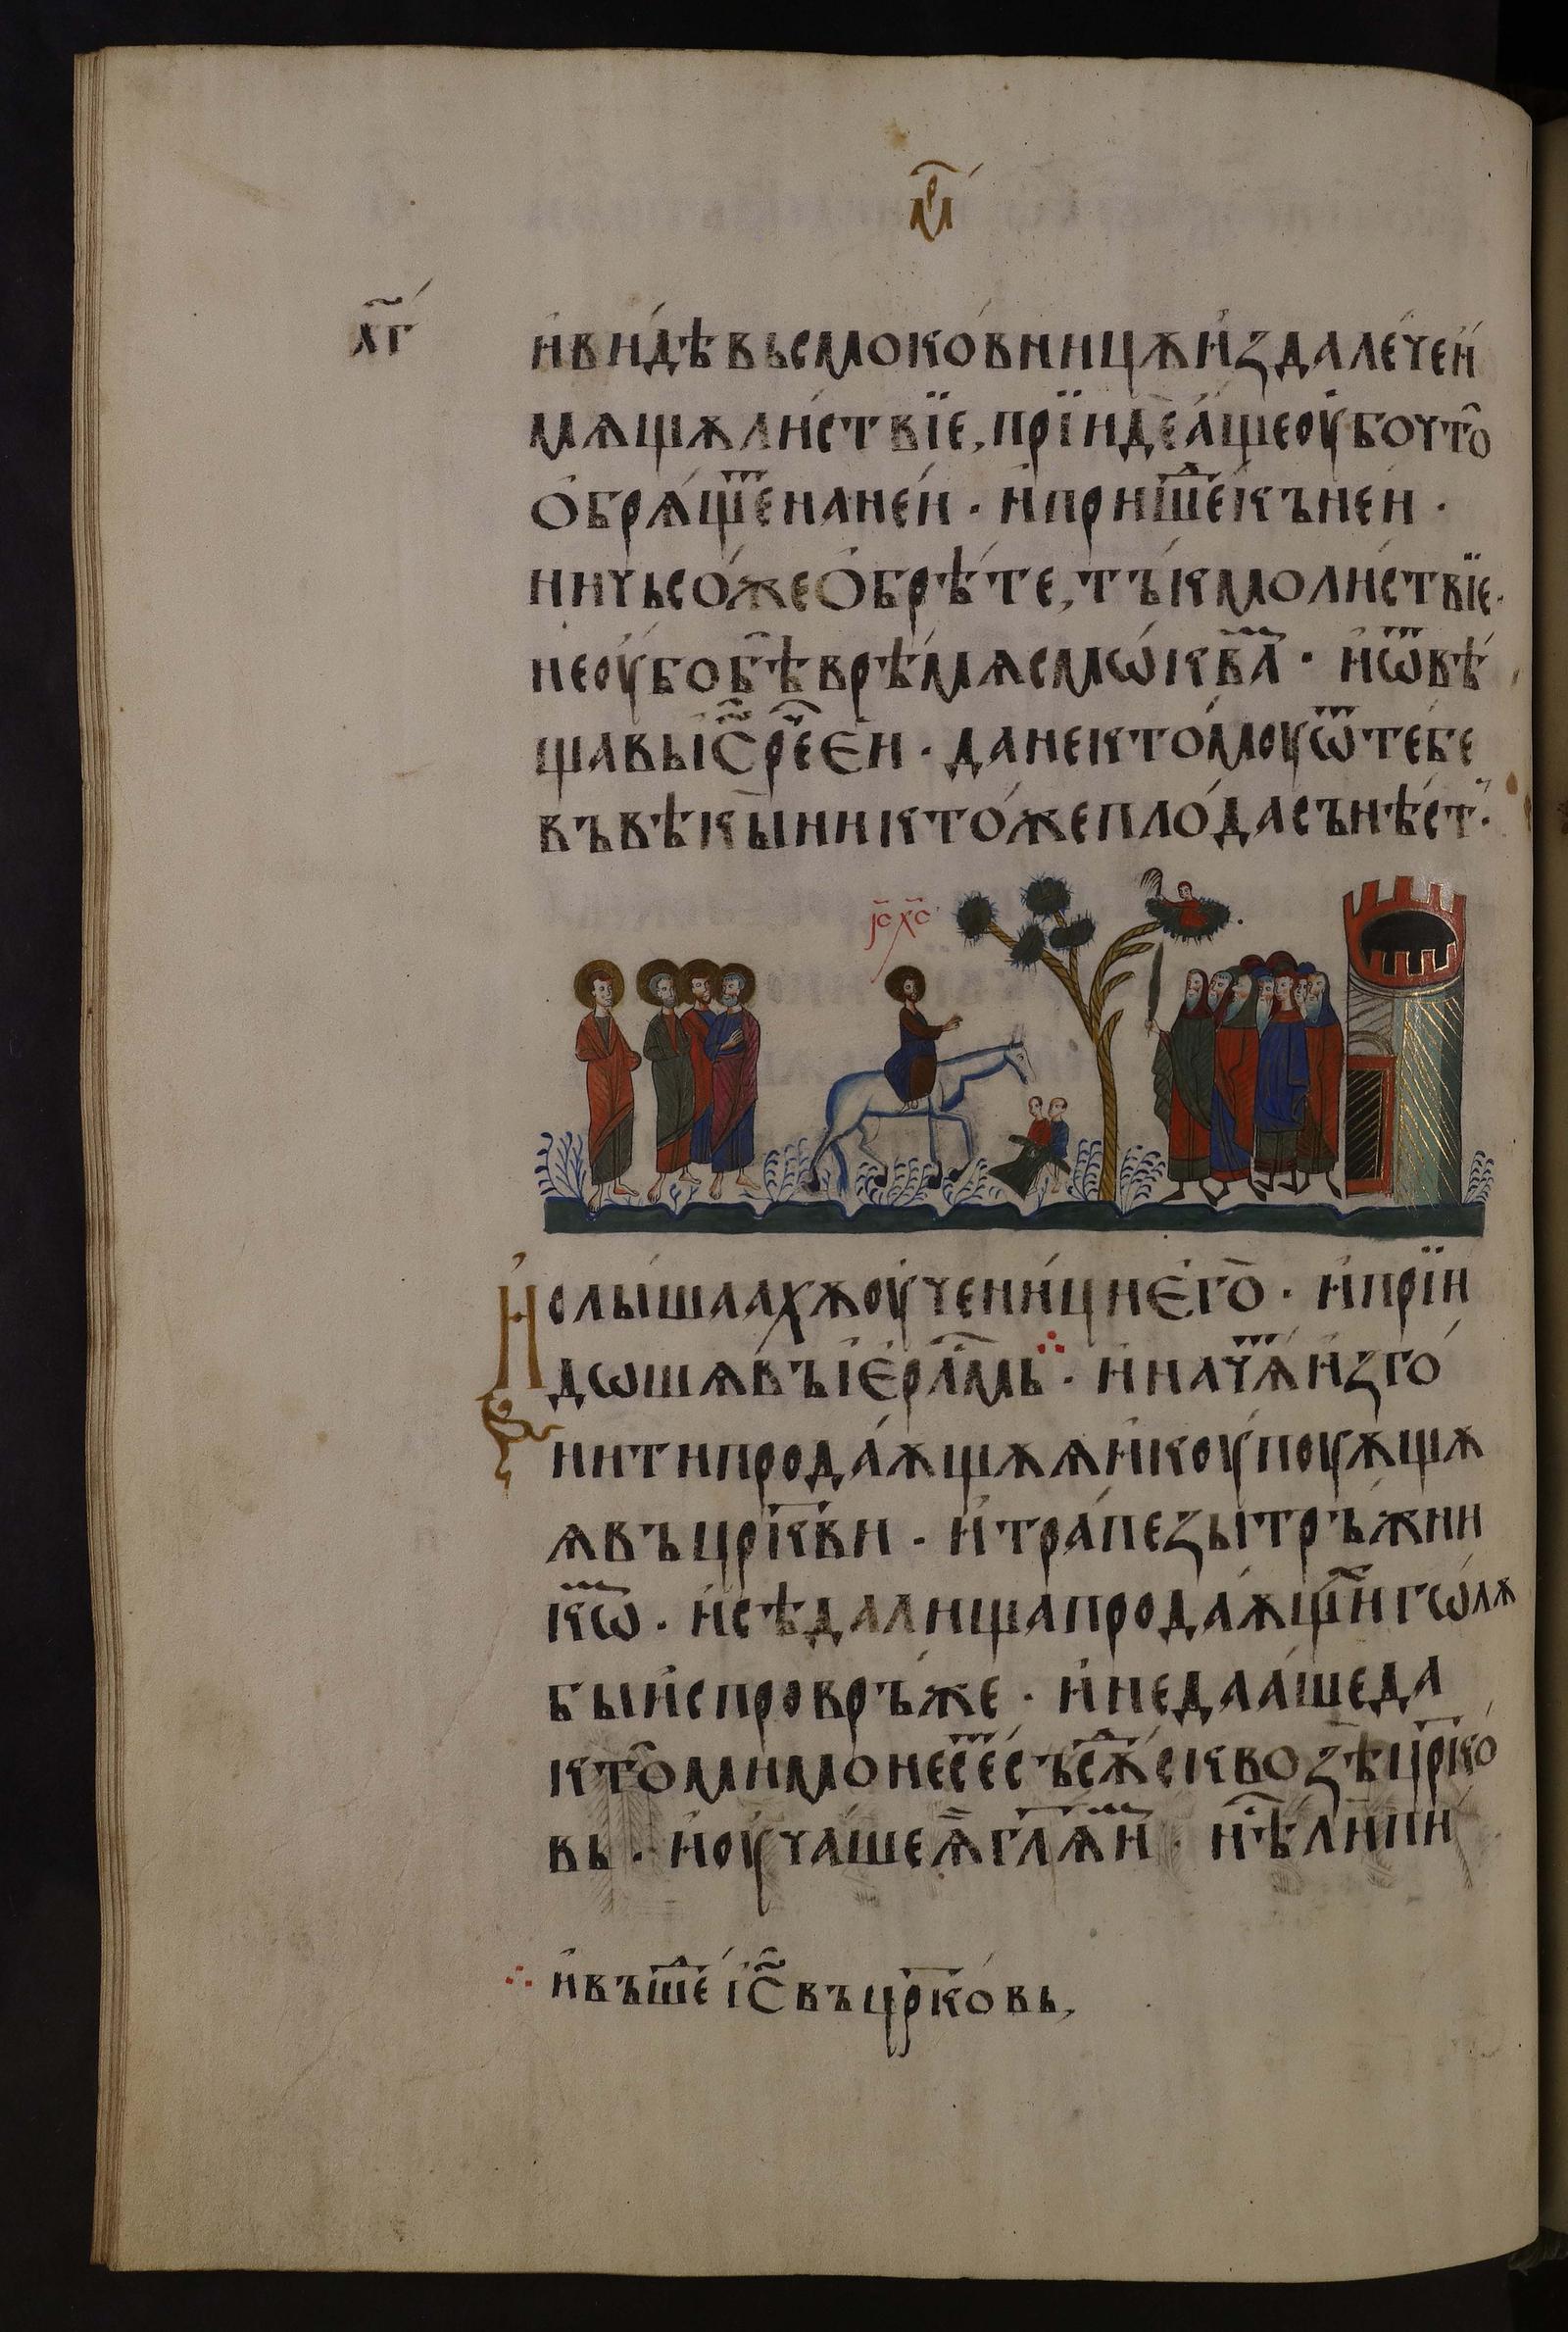 мр
хг
и҆ви́дѣвьсмоко́вницѫи҆здале́чеи҆
мѫщѫли́ствїе, прїидеа҆́щеоу҆боуто
о҆брѧ́щенане́и. и҆прише́къне́и.
ничьсо́жео҆брѣ́те, тъ́кмоли́ствїе.
неоу҆бобѣврѣ́мѧсмѡ́ква. и҆ѿвѣ́
щавыі҆с҃рееи. данекто́моуѿте́бе
въвѣкыникто́жепло́дасънѣ́ст.
і҃с х҃с
И҆слы́шаахѫоу҆чени́циѐго. и҆прїи
дѡшѧвъі҆е҆рл҃мь჻. и҆нача́и҆зго́
нитипрода́ѫщѧѧи҆коу҆поуѫщѧ
ѧвъцр҃кви. и҆тра́пезытръ́жни
кѡ. и҆сѣда́лищапрода́ѫщи́гѡлѫ
быи҆спровръ́же. и҆недаа́шеда
ктомимонесе́съсѫ́сквозѣцр҃ко
вь. и҆оу҆ча́шеѧгл҃ѧи. нѣ́липи
჻ и҆въше́ і҆с҃въцр҃ко́вь,